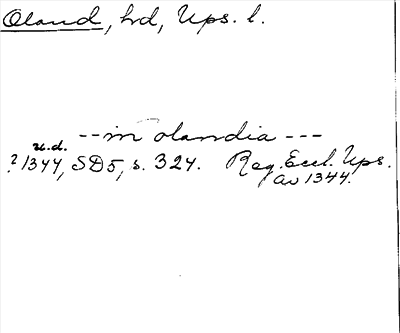 Oland, hd, Ups. l.
--- in olandia ---
u.d.
? 1344, SD5, s. 324. Reg. Eccl. Ups.
av 1344.